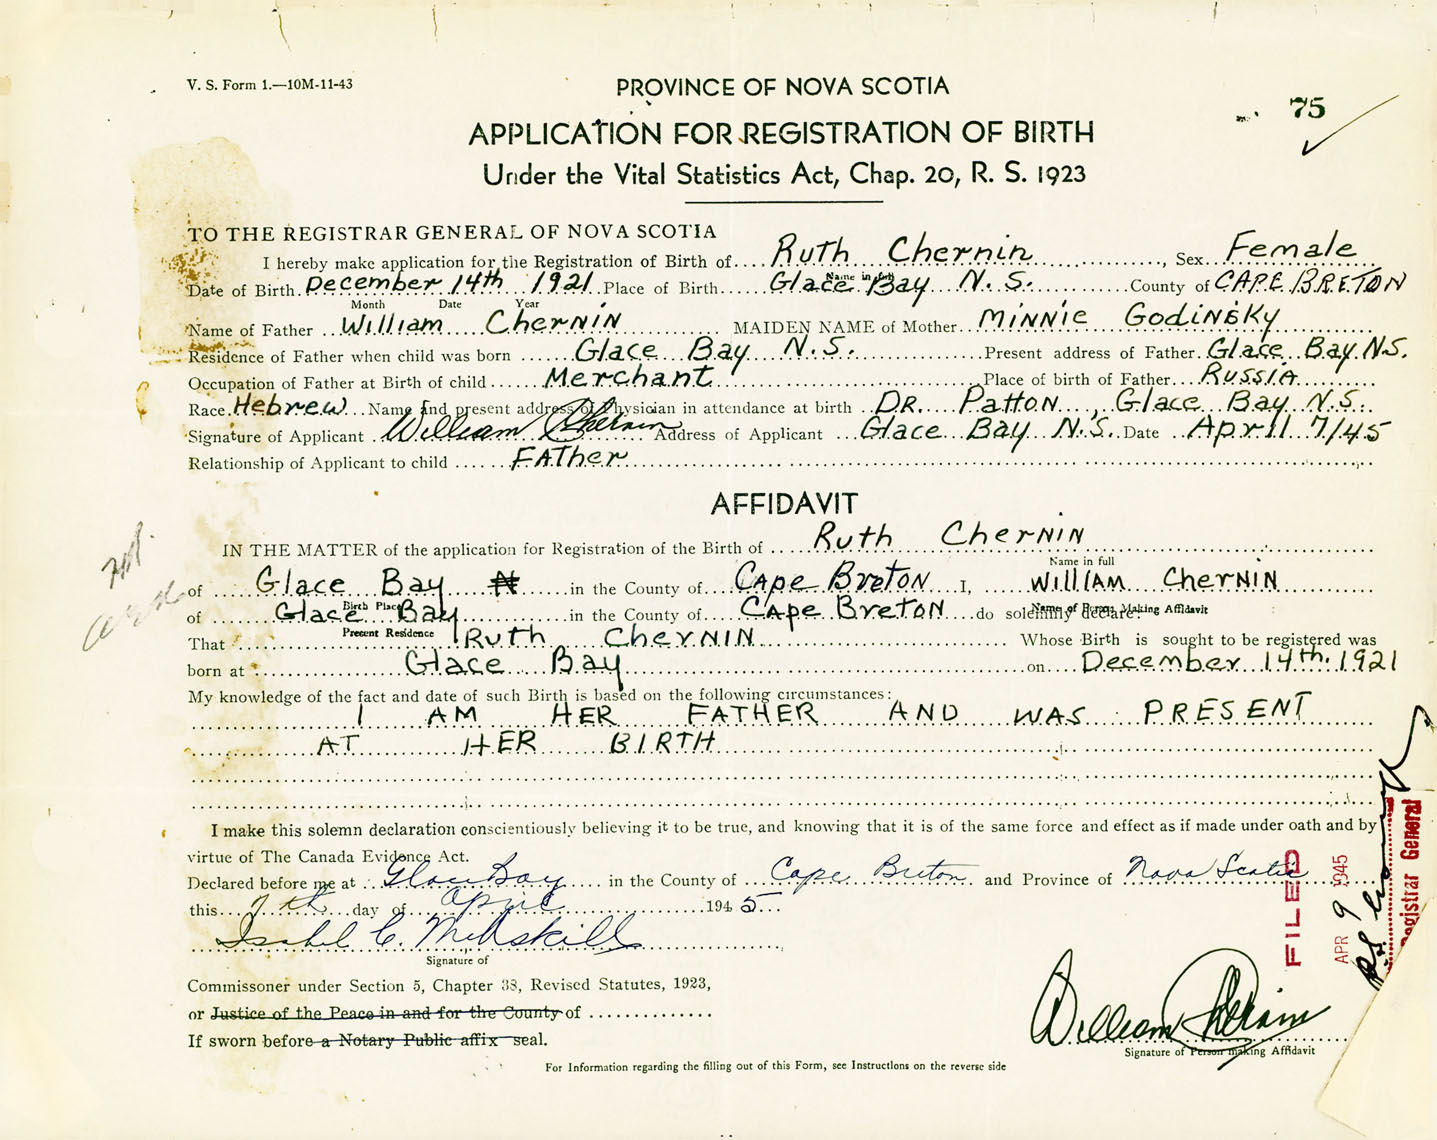 V. S. Form 1.—10M-11-43
PROVINCE OF NOVA SCOTIA
75
APPLICATION FOR REGISTRATION OF BIRTH
Under the Vital Statistics Act, Chap. 20, R. S. 1923
TO THE REGISTRAR GENERAL OF NOVA SCOTIA
I hereby make application for the Registration of Birth of Ruth Chernin, Sex Female
Name in full
Date of Birth December 14th 1921 Place of Birth Glace Bay N.S. County of CAPE BRETON
Month Date Year
Name of Father William Chernin MAIDEN NAME of Mother Minnie Godinsky
Residence of Father when child was born Glace Bay N.S. Present address of Father Glace Bay N.S.
Occupation of Father at Birth of child Merchant Place of birth of Father Russia
Race Hebrew Name and present address of Physician in attendance at birth DR. Patton, Glace Bay N.S.
Signature of Applicant William Chernin Address of Applicant Glace Bay N.S. Date April 7/45
Relationship of Applicant to child FATher
AFFIDAVIT
IN THE MATTER of the application for Registration of the Birth of Ruth Chernin
Name in full
of Glace Bay N in the County of Cape Breton I, William Chernin
Birth Place Name of Person Making Affidavit
of Glace Bay in the County of Cape Breton do solemnly declare:
Present Residence
That Ruth Chernin Whose Birth is sought to be registered was
born at Glace Bay on December 14th. 1921
My knowledge of the fact and date of such Birth is based on the following circumstances:
I AM HER FATHER AND WAS PRESENT
AT HER BIRTH
I make this solemn declaration conscientiously believing it to be true, and knowing that it is of the same force and effect as if made under oath and by
virtue of The Canada Evidence Act.
Declared before me at Glace Bay in the County of Cape Breton and Province of Nova Scotia
this 7th day of April 1945
Signature of
Commissoner under Section 5, Chapter 38, Revised Statutes, 1923,
or Justice of the Peace in and for the County of
If sworn before a Notary Public affix seal.
William Chernin
Signature of Person making Affidavit
For Information regarding the filling out of this Form, see Instructions on the reverse side
FILED
APR 9 1945
Registrar General